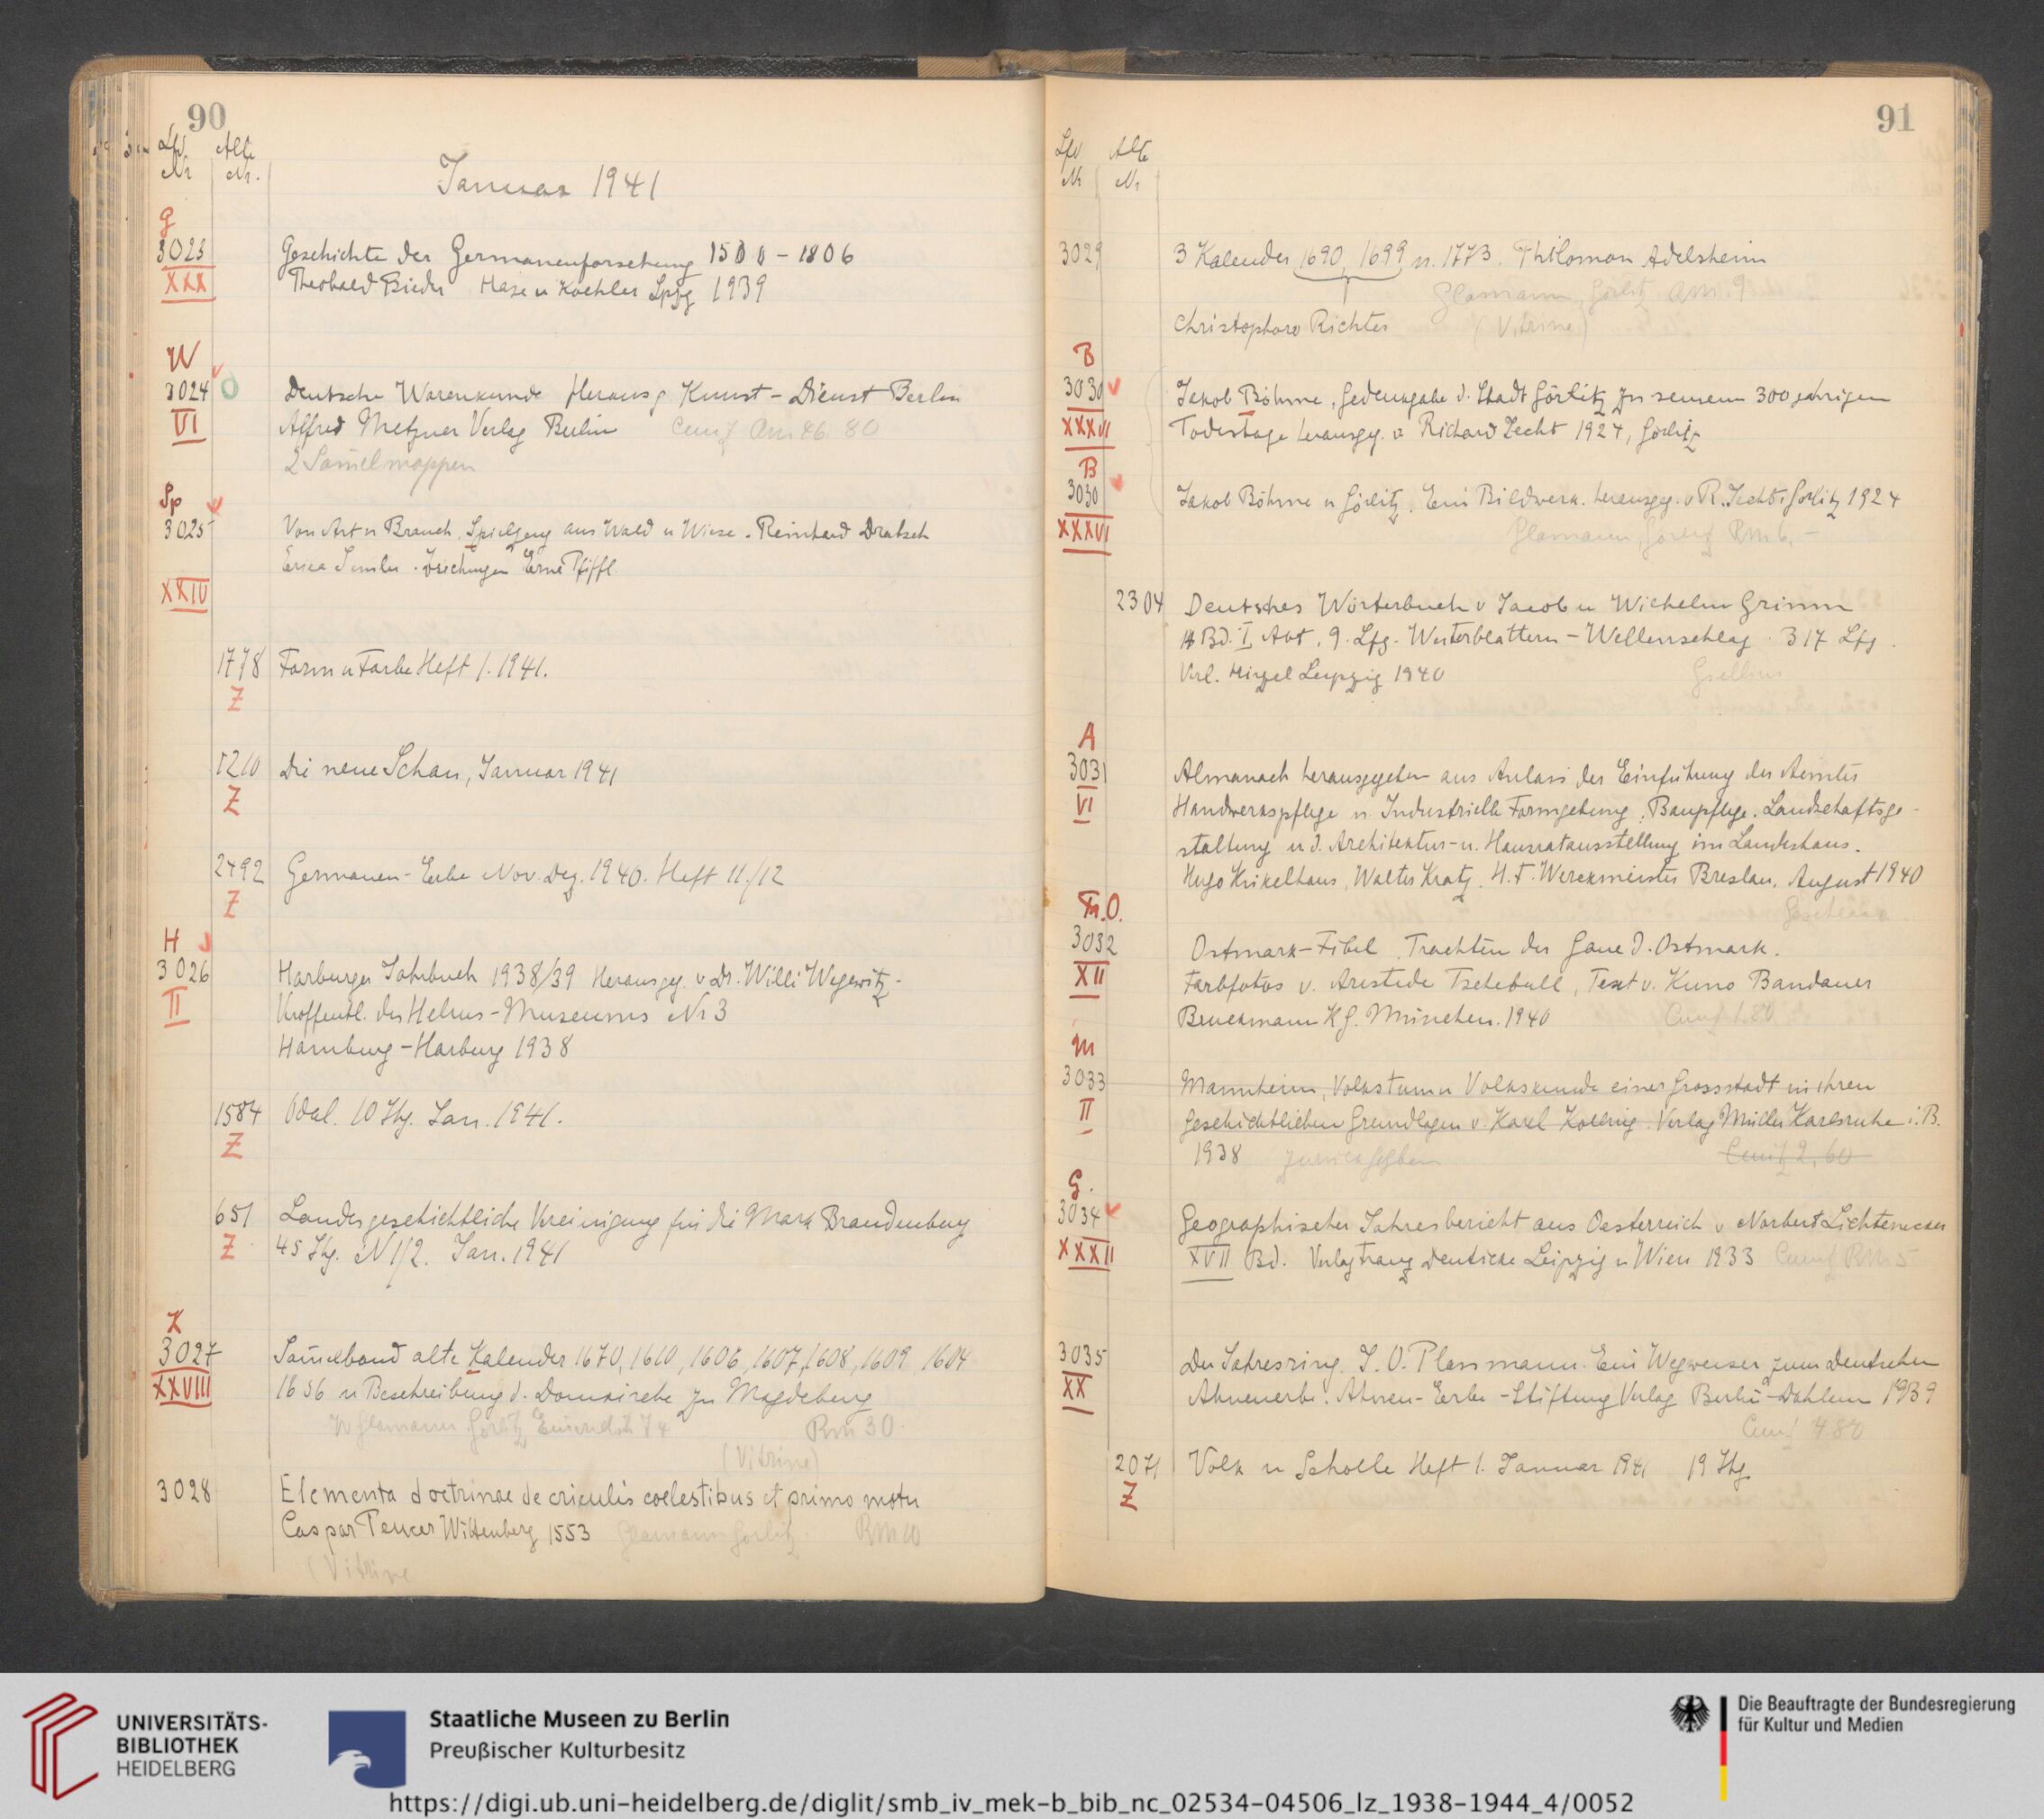 90
Lfd. Alte
Nr Nr.
Januar 1941
G
3023 Geschichte der Germanenforschung 1500 - 1806
XXX Theobald Bieder Hase u Koehler Lpzg 1939
W
3024 Deutsche Warenkunde Herausg Kunst - Dienst Berlin
VI Alfred Metzner Verlag Berlin 80
2 Sam̄elmappen
Sp
3025 Von Art u Brauch, Spielzeug aus Wald u Wiese. Reinhard
Erica Pfiffl.
XXIV
1778 Form u Farbe Heft 1. 1941.
Z
1210 Die neue Schau, Januar 1941
Z
2492 Germanen-Erbe Nov. Dez. 1940. Heft 11./12
Z
H
3026 Harburger Jahrbuch 1938/39 Herausgeg. v Dr. Willi Wegewitz -
II Veröffentl. des Helms-Museums Nr 3
Hamburg - Harburg 1938
1584 Odal. 10 Jhg. Jan. 1941.
Z
651 Landesgeschichtliche Vereinigung für die Mark Brandenburg
Z 45 Jhg. N 1/2. Jan. 1941
K
3027 Sam̄elband alte Kalender 1670, 1610, 1606, 1607, 1608, 1609, 1604
XXVIII 1656 u Beschreibung d. Domkirche zu Magdeburg
Glamann Görlitz 74 Rm 30.
(Vitrine)
3028 Elementa doctrinae de criculis coelestibus et primo motu
Caspar Peucer Wittenberg 1553 Glamann Görlitz. RM 10
(Vitrine
91
Lfd Alte
Nr Nr
3029 3 Kalender 1690, 1699 u. 1773. Adelsheim
Glamann, Görlitz 9
Christophoro Richter (Vitrine)
B
3030 Jakob Böhme, Gedenkgabe d. Stadt Görlitz zu seinem 300 jahrigen
XXXVI Todestage herausgeg. v Richard Jecht 1924, Görlitz
B
3030 Jakob Böhme u Görlitz. Ein Bildwerk. herausgeg. v R. Jecht, Görlitz 1924
XXXVI Glamann, Görlitz Rm 6,-
2304 Deutsches Wörterbuch v Jacob u Wilhelm Grimm
Bd. I Abt. 9. Lfg. - Wellenschlag. 317 Lfg.
Verl. Hirzel Leipzig 1940 Gsellius
A
3031 Almanach herausgegeben aus Anlass der Einführung der Aemter
VI Handwerkspflege u Industrielle Formgebung, Baupflege. Landschaftsge-
staltung u d. Architektur- u. Hausratausstellung im Landeshaus.
Hugo Kükelhaus, Walter Kratz, H. F. Werckmeister Breslau, August 1940
Geschenk.
Tr. O.
3032 Ostmark-Fibel. Trachten der Gaue d. Ostmark.
XII Farbfotos v. Aristide Tschebull, Text v. Kuno Bandauer
Bruckmann KG. München. 1940 1.80
M
3033 Mannheim, Volkstum u Volkskunde einer Grossstadt in ihren
II geschichtlichen Grundlagen v. Karl Kollnig. Verlag Müller Karlsruhe i. B.
1938 zurückgegeben 2,60
G.
3034 Geographischer Jahresbericht aus Oesterreich v Norbert Lichtenecker
XXXII XVII Bd. Verlag Franz Deuticke Leipzig u Wien 1933 RM 5
3035 Der Jahresring. J. O. Plassmann. Ein Wegweiser zum deutschen
XX Ahnenerbe. Ahnen-Erbe-Stiftung Verlag Berlin-Dahlem 1939
4 80
2071 Volk u Scholle Heft 1. Januar 1941 19 Jhg
Z
UNIVERSITÄTS-
BIBLIOTHEK
HEIDELBERG
Staatliche Museen zu Berlin
Preußischer Kulturbesitz
Die Beauftragte der Bundesregierung
für Kultur und Medien
https://digi.ub.uni-heidelberg.de/diglit/smb_iv_mek-b_bib_nc_02534-04506_lz_1938-1944_4/0052